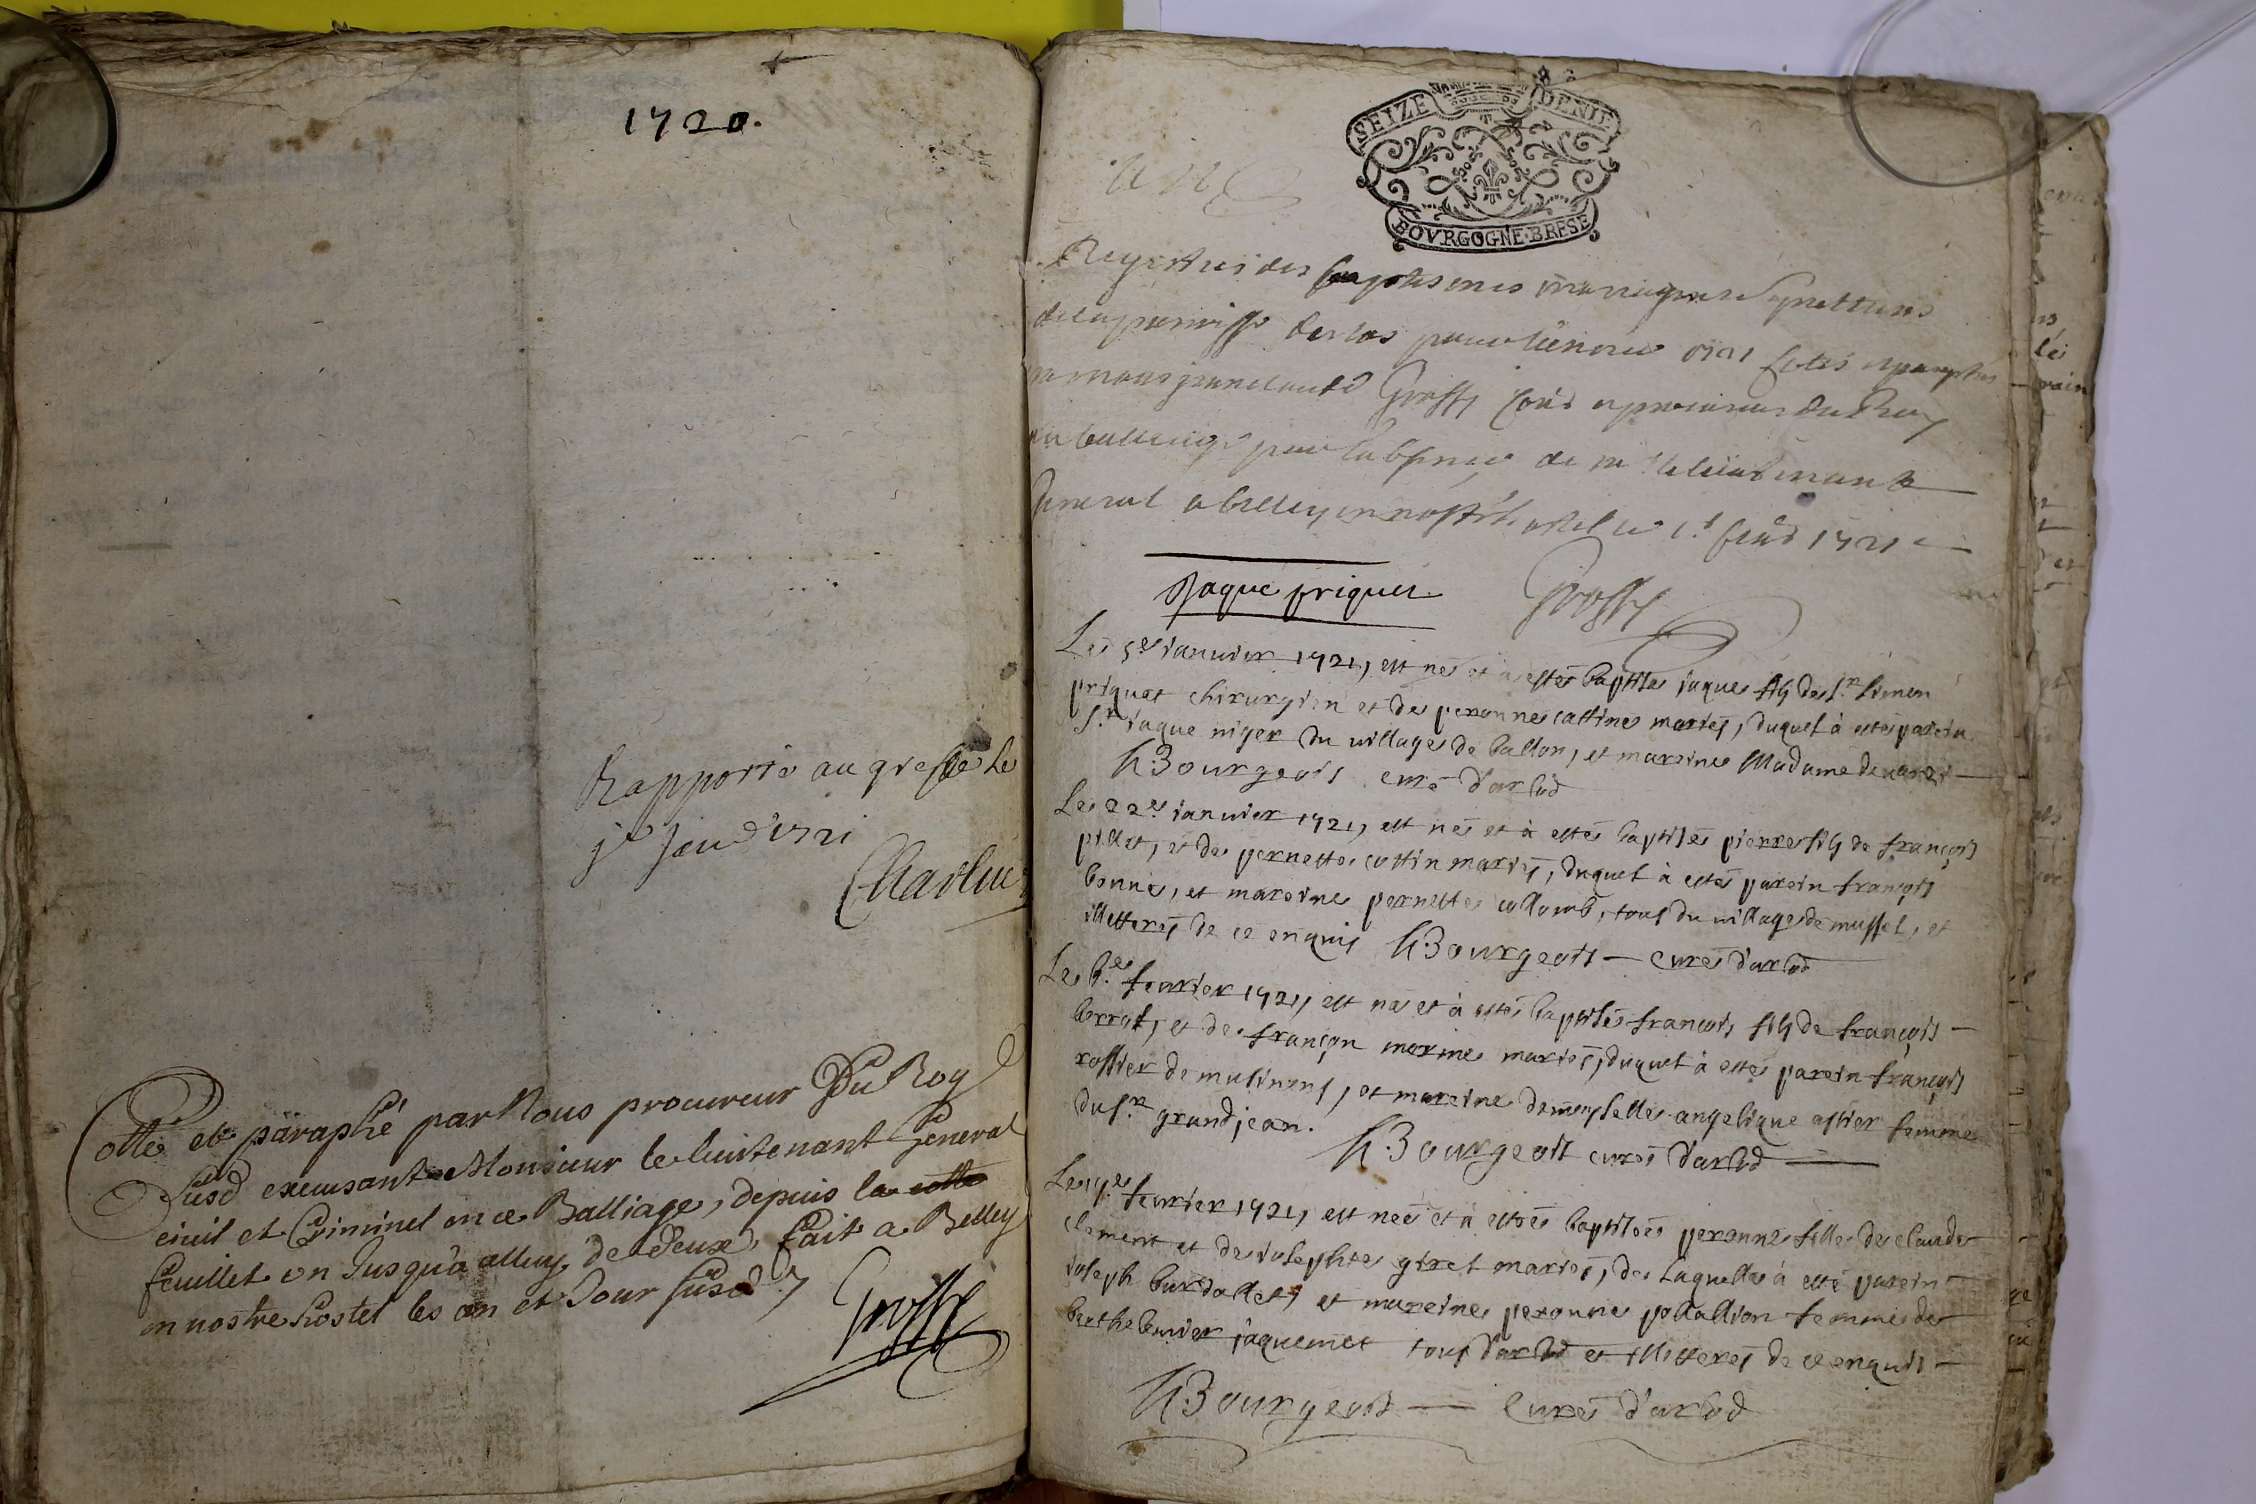 1720.
Rapporté au greffe le
je janv 1721
Cotté et paraphé par Nous procureur Du Roy
susd excusant Monsieur le lieutenant General
civil et Criminel en ce Balliage, depuis la cotte
feuillet un Jusqu'à alluy de deux, fait a Belley
en nostre hostel les an et Jour susd
Grossy
SEIZE DENIE
BOVRGOGNE·BRESE
Registres des baptismes mariages et sepultures
de la parroisse pour l'année 1721 cottés et paraphés
par nous jean claude Grossy procureur du Roy
au balliage pour l'absence de mr le lieutenant
General a belley en nostre hostel le 1721
Jaque priquet
Grossy
Le 5e ianuier 1721, est né et à esté baptisé iaques fils de Sr simon
priquet chirurgien et de peronne cattine mariés, duquel à esté parein
Sr iaque niger du uillage de ballon, et mareine Madame de
h Bourgeois curé d'arlod
Le 22e ianuier 1721, est né et à esté baptisé pierre fils de françois
pillet, et de pernette cottin mariés, duquel à esté parein françois
bonne, et mareine pernette collomb, tous du uillage de mussel, et
illetterés de ce enquis h Bourgeois curé d'arlod
Le 6e feurier 1721, est né et à esté baptisé françois fils de françois
borrat, et de françon marme mariés, duquel à esté parein françois
rossier de musinens, et mareine demoyselle angelique assier femme
du Sr grandjean.
h Bourgeois curé d'arlod
Le feurier 1721, est née et à estée baptisée peronne fille de claude
clement et de iosephte giret mariés, de laquelle à esté parein
ioseph burdallet, et mareine peronne poltallion femme de
berthelemier jaquemet tous d'arlod et illetterés de ce enquis
h Bourgeois curé d'arlod